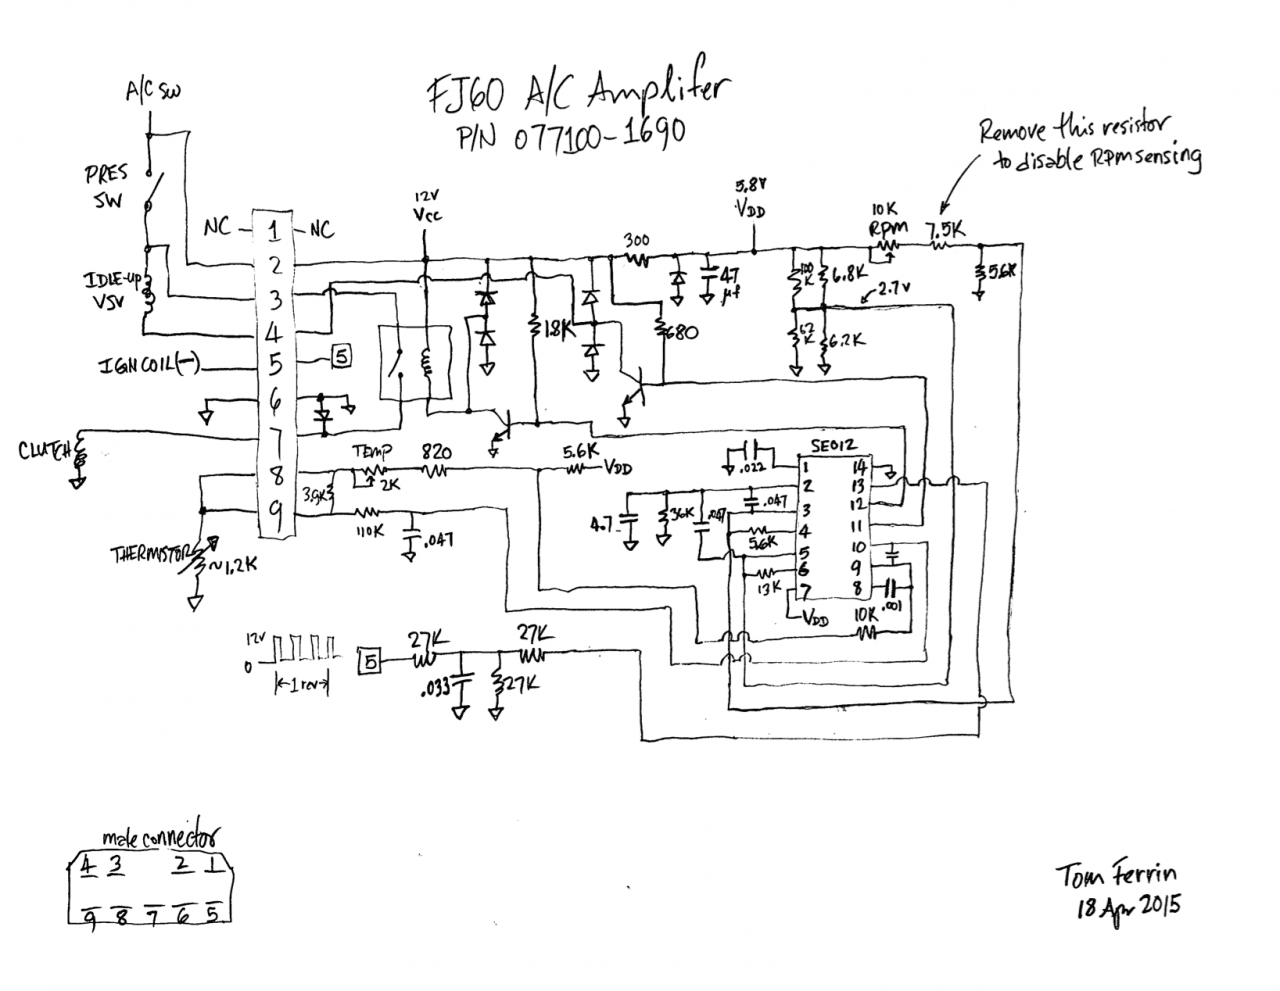 FJ60 A/C Amplifer
P/N 077100-1690
A/C SW
PRES
SW
IDLE-UP
VSV
NC
NC
1
2
3
4
5
6
7
8
9
IGN COIL(-)
5
CLUTCH
THERMISTOR
~1.2K
12V
VCC
300
5.8V
VDD
47
μf
10K
RPM
7.5K
Remove this resistor
to disable RPM sensing
5.6K
100
K
6.8K
2.7V
62
K
6.2K
18K
680
TEMP
2K
820
5.6K
VDD
3.9K
110K
.047
SE012
.022
1
2
3
4
5
6
7
14
13
12
11
10
9
8
4.7
36K
.047
.047
56K
13K
VDD
10K
.001
12V
0
1 rev
5
27K
27K
.033
27K
male connector
4 3 2 1
9 8 7 6 5
Tom Ferrin
18 Apr 2015